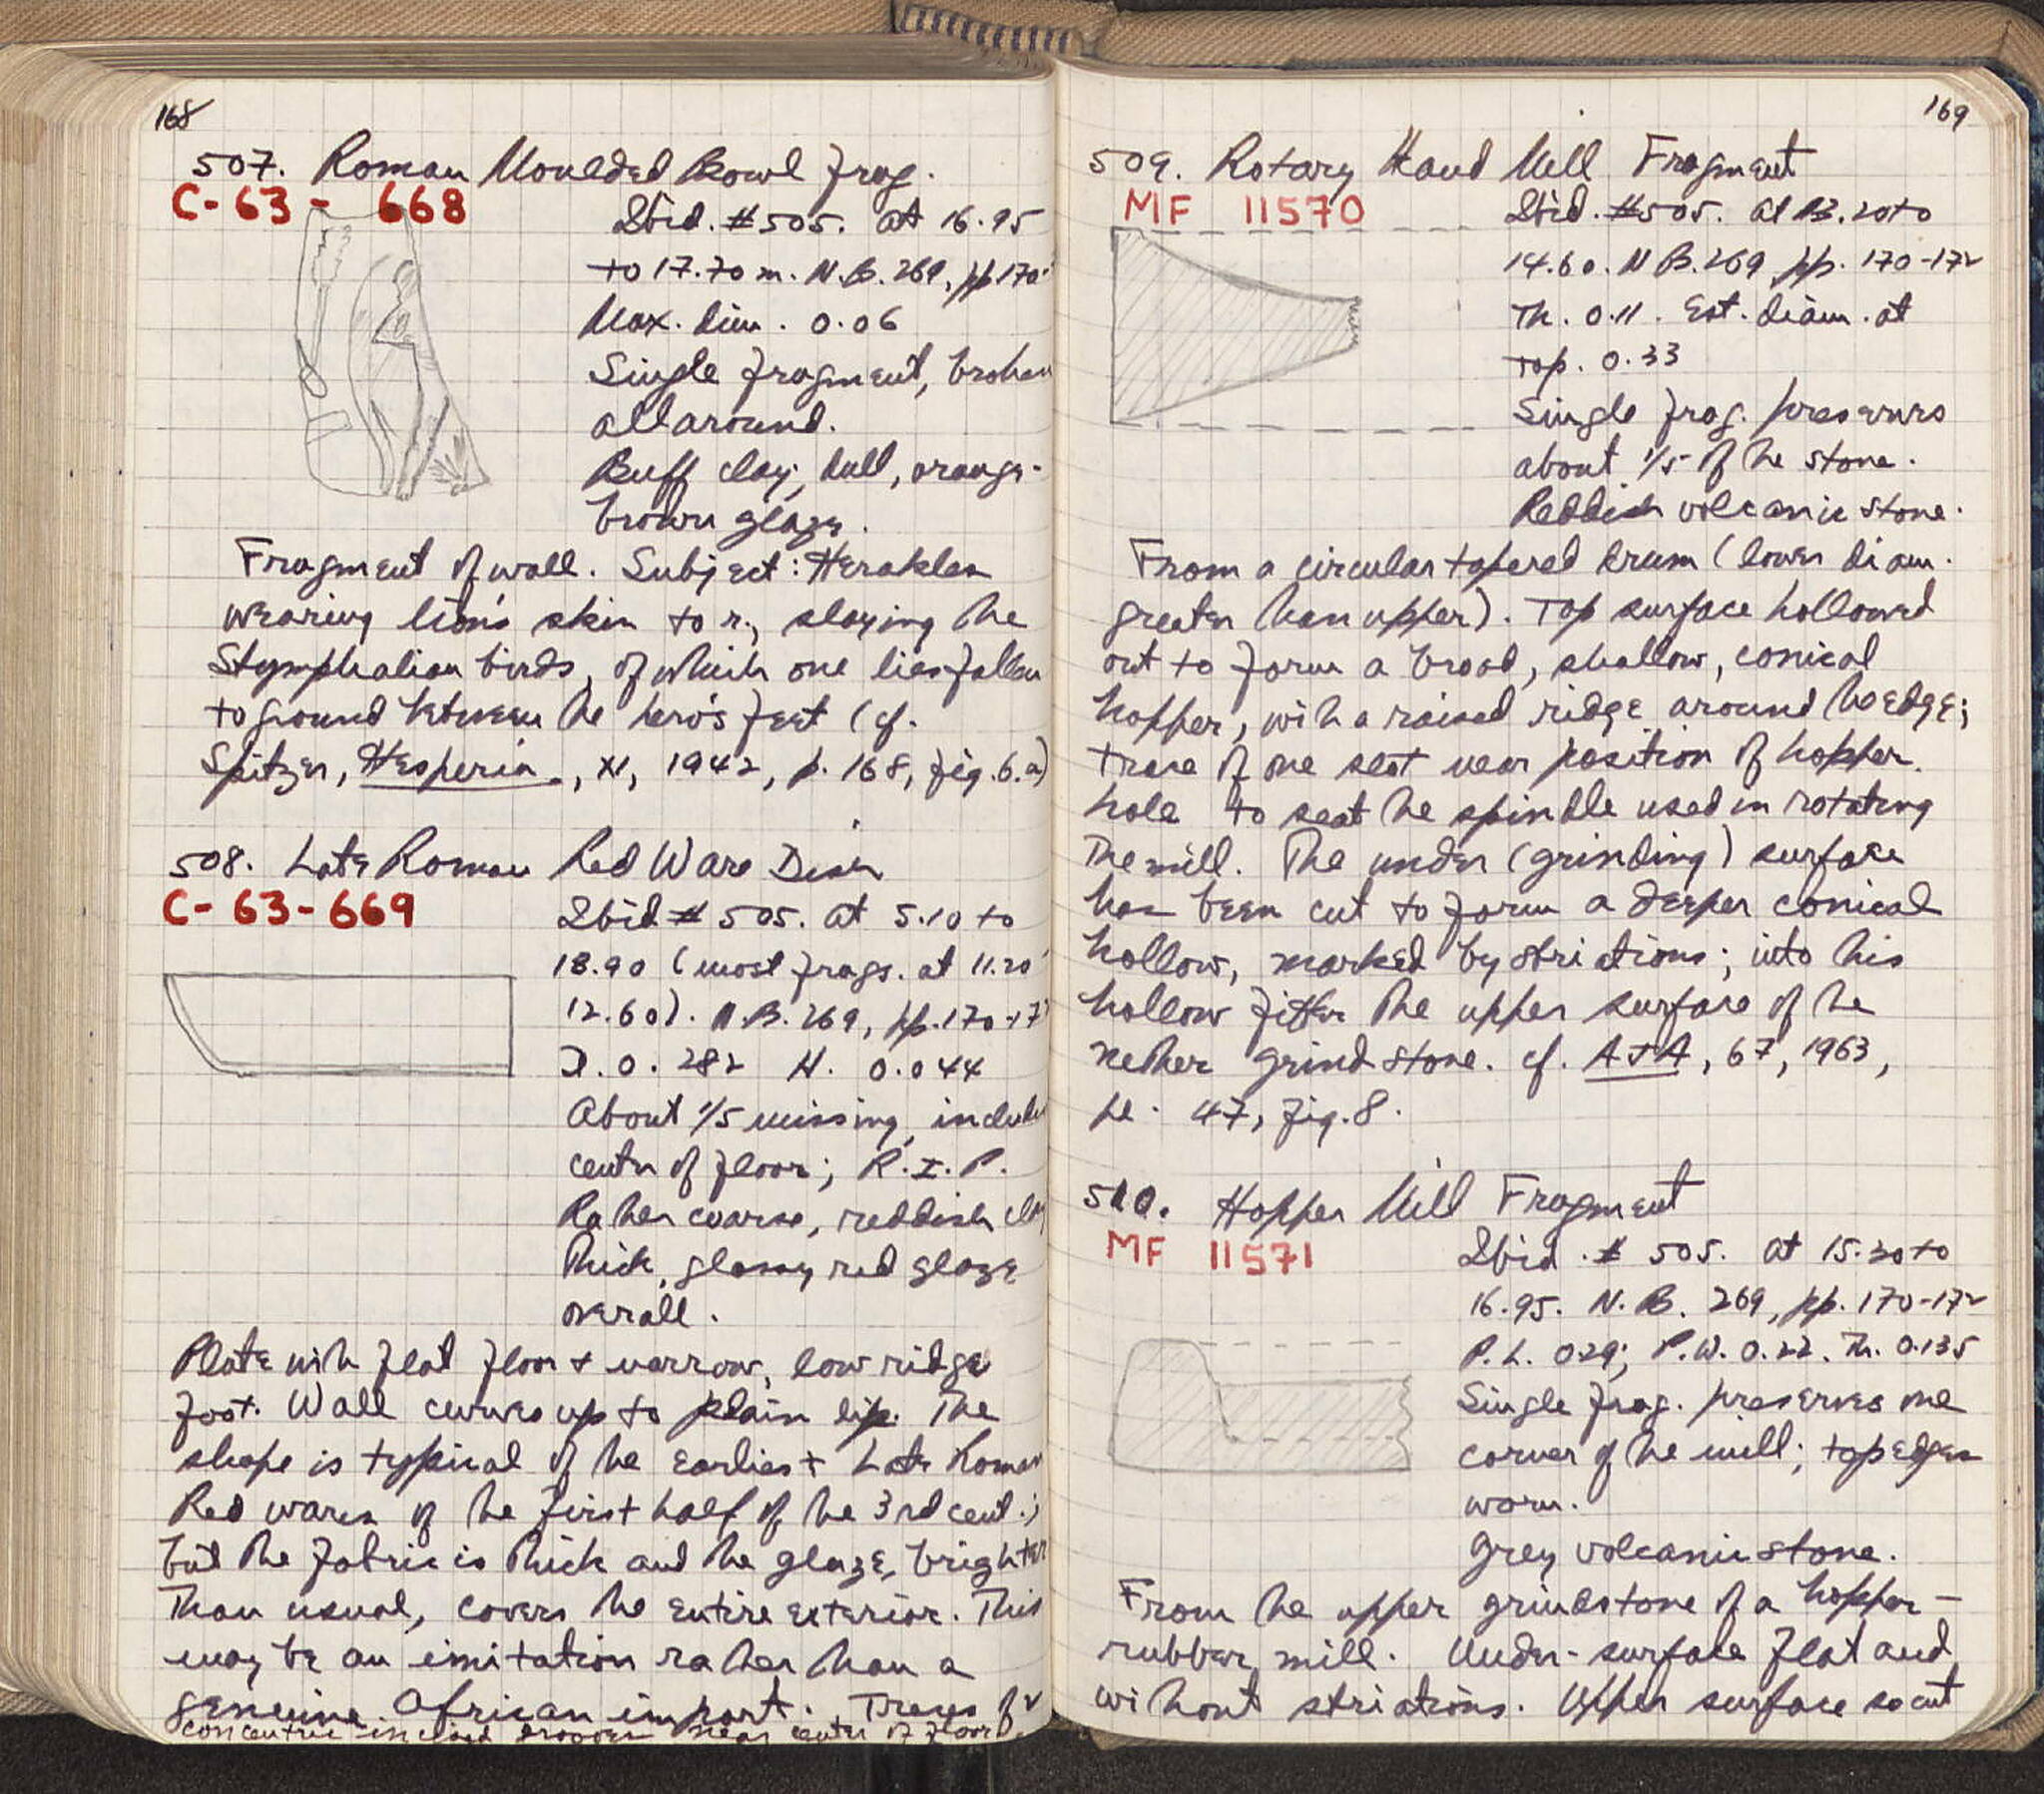 168
507. Roman Moulded Bowl frag.
C-63-668
Ibid. #505. at 16.95
to 17.70 m. N.B. 269, pp 170-
Max. dim. 0.06
Single fragment, broken
all around.
Buff clay, dull, orange-
brown glaze.
Fragment of wall. Subject: Herakles
wearing lion's skin to r., slaying the
Stymphalian birds, of which one lies fallen
to ground between the hero's feet (cf.
Spitzer, Hesperia, XI, 1942, p. 168, fig. 6.a)
508. Late Roman Red Ware Dish
C-63-669
Ibid # 505. at 5.10 to
18.90 (most frags. at 11.20
12.60). N.B. 269, pp. 170-17
D. 0.282 H. 0.044
About 1/5 missing,
center of floor; R.I.P.
Rather coarse, reddish clay
Thick, glossy red glaze
overall.
Plate with flat floor + narrow, low ridge
foot. Wall curves up to plain lip. The
shape is typical of the earliest Late Roman
Red wares of the first half of the 3rd cent.;
but the fabric is thick and the glaze, brighter
than usual, covers the entire exterior. This
may be an imitation rather than a
genuine African import. Traces of 2
concentric incised grooves near center of floor.
169
509. Rotary Hand Mill Fragment
MF 11570
Ibid. #505. at 13.20 to
14.60. N.B. 269 pp. 170-172
Th. 0.11. Est. diam. at
top. 0.33
Single frag. preserves
about 1/5 of the stone.
Reddish volcanic stone.
From a circular tapered drum (lower diam.
greater than upper). Top surface hollowed
out to form a broad, shallow, conical
hopper, with a raised ridge around the edge;
trace of one slot near position of hopper
hole to seat the spindle used in rotating
the mill. The under (grinding) surface
has been cut to form a deeper conical
hollow, marked by striations; into this
hollow fitted the upper surface of the
nether grindstone. cf. AJA, 67, 1963,
pl. 47, fig. 8.
510. Hopper Mill Fragment
MF 11571
Ibid. # 505. at 15.30 to
16.95. N.B. 269, pp. 170-172
P.L. 0.29; P.W. 0.22. Th. 0.135
Single frag. preserves one
corner of the mill; top edges
worn.
Grey volcanic stone.
From the upper grindstone of a hopper-
rubber mill. Under-surface flat and
without striations. Upper surface so cut